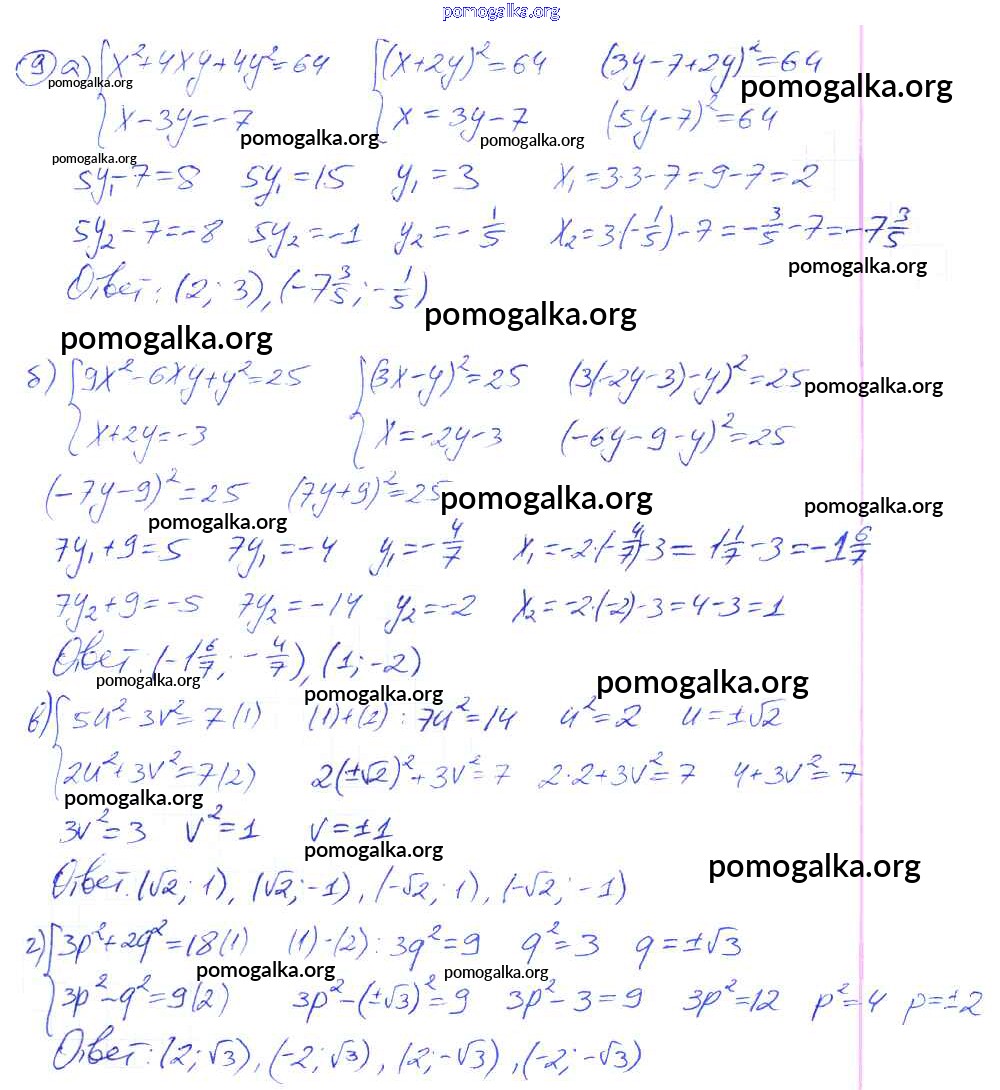 pomogalka.org
9) а) { x² + 4xy + 4y² = 64 { (x+2y)² = 64 (3y-7+2y)² = 64
pomogalka.org pomogalka.org
x - 3y = -7 x = 3y - 7 (5y-7)² = 64
pomogalka.org pomogalka.org
pomogalka.org
5y₁ - 7 = 8 5y₁ = 15 y₁ = 3 x₁ = 3·3 - 7 = 9 - 7 = 2
5y₂ - 7 = -8 5y₂ = -1 y₂ = -1/5 x₂ = 3(-1/5) - 7 = -3/5 - 7 = -7 3/5
pomogalka.org
Ответ: (2; 3), (-7 3/5; -1/5)
pomogalka.org
pomogalka.org
б) { 9x² - 6xy + y² = 25 { (3x-y)² = 25 (3(-2y-3)-y)² = 25
pomogalka.org
x + 2y = -3 x = -2y - 3 (-6y-9-y)² = 25
(-7y-9)² = 25 (7y+9)² = 25
pomogalka.org pomogalka.org
pomogalka.org
7y₁ + 9 = 5 7y₁ = -4 y₁ = -4/7 x₁ = -2·(-4/7) - 3 = 1 1/7 - 3 = -1 6/7
7y₂ + 9 = -5 7y₂ = -14 y₂ = -2 x₂ = -2·(-2) - 3 = 4 - 3 = 1
Ответ: (-1 6/7; -4/7), (1; -2)
pomogalka.org pomogalka.org pomogalka.org
в) { 5u² - 3v² = 7 (1) (1)+(2): 7u² = 14 u² = 2 u = ±√2
2u² + 3v² = 7 (2) 2(±√2)² + 3v² = 7 2·2 + 3v² = 7 4 + 3v² = 7
pomogalka.org
3v² = 3 v² = 1 v = ±1
pomogalka.org pomogalka.org
Ответ: (√2; 1), (√2; -1), (-√2; 1), (-√2; -1)
г) { 3p² + 2q² = 18 (1) (1)-(2): 3q² = 9 q² = 3 q = ±√3
pomogalka.org pomogalka.org
3p² - q² = 9 (2) 3p² - (±√3)² = 9 3p² - 3 = 9 3p² = 12 p² = 4 p = ±2
Ответ: (2; √3), (-2; √3), (2; -√3), (-2; -√3)